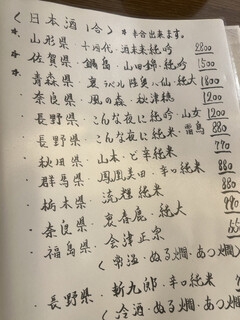 〈日本酒 1合〉 * 半合出来ます。
* 山形県・十四代・酒未来純吟 2800
* 佐賀県・鍋島・山田錦・純吟 1500
* 青森県・裏ラベル陸奥八仙・純大 1800
・奈良県・風の森・秋津穂 1200
・長野県・こんな夜に・純吟・山女 1200
・長野県・こんな夜に・純米・雷鳥 880
・秋田県・山本・ど辛純米 770
・群馬県・鳳凰美田・辛口純米 880
・栃木県・流輝純米 880
・奈良県・裏春鹿・純大 990
・福島県・会津正宗
(常温・ぬる燗・あつ燗)
・長野県・新九郎・辛口純米
(冷酒・ぬる燗・あつ燗